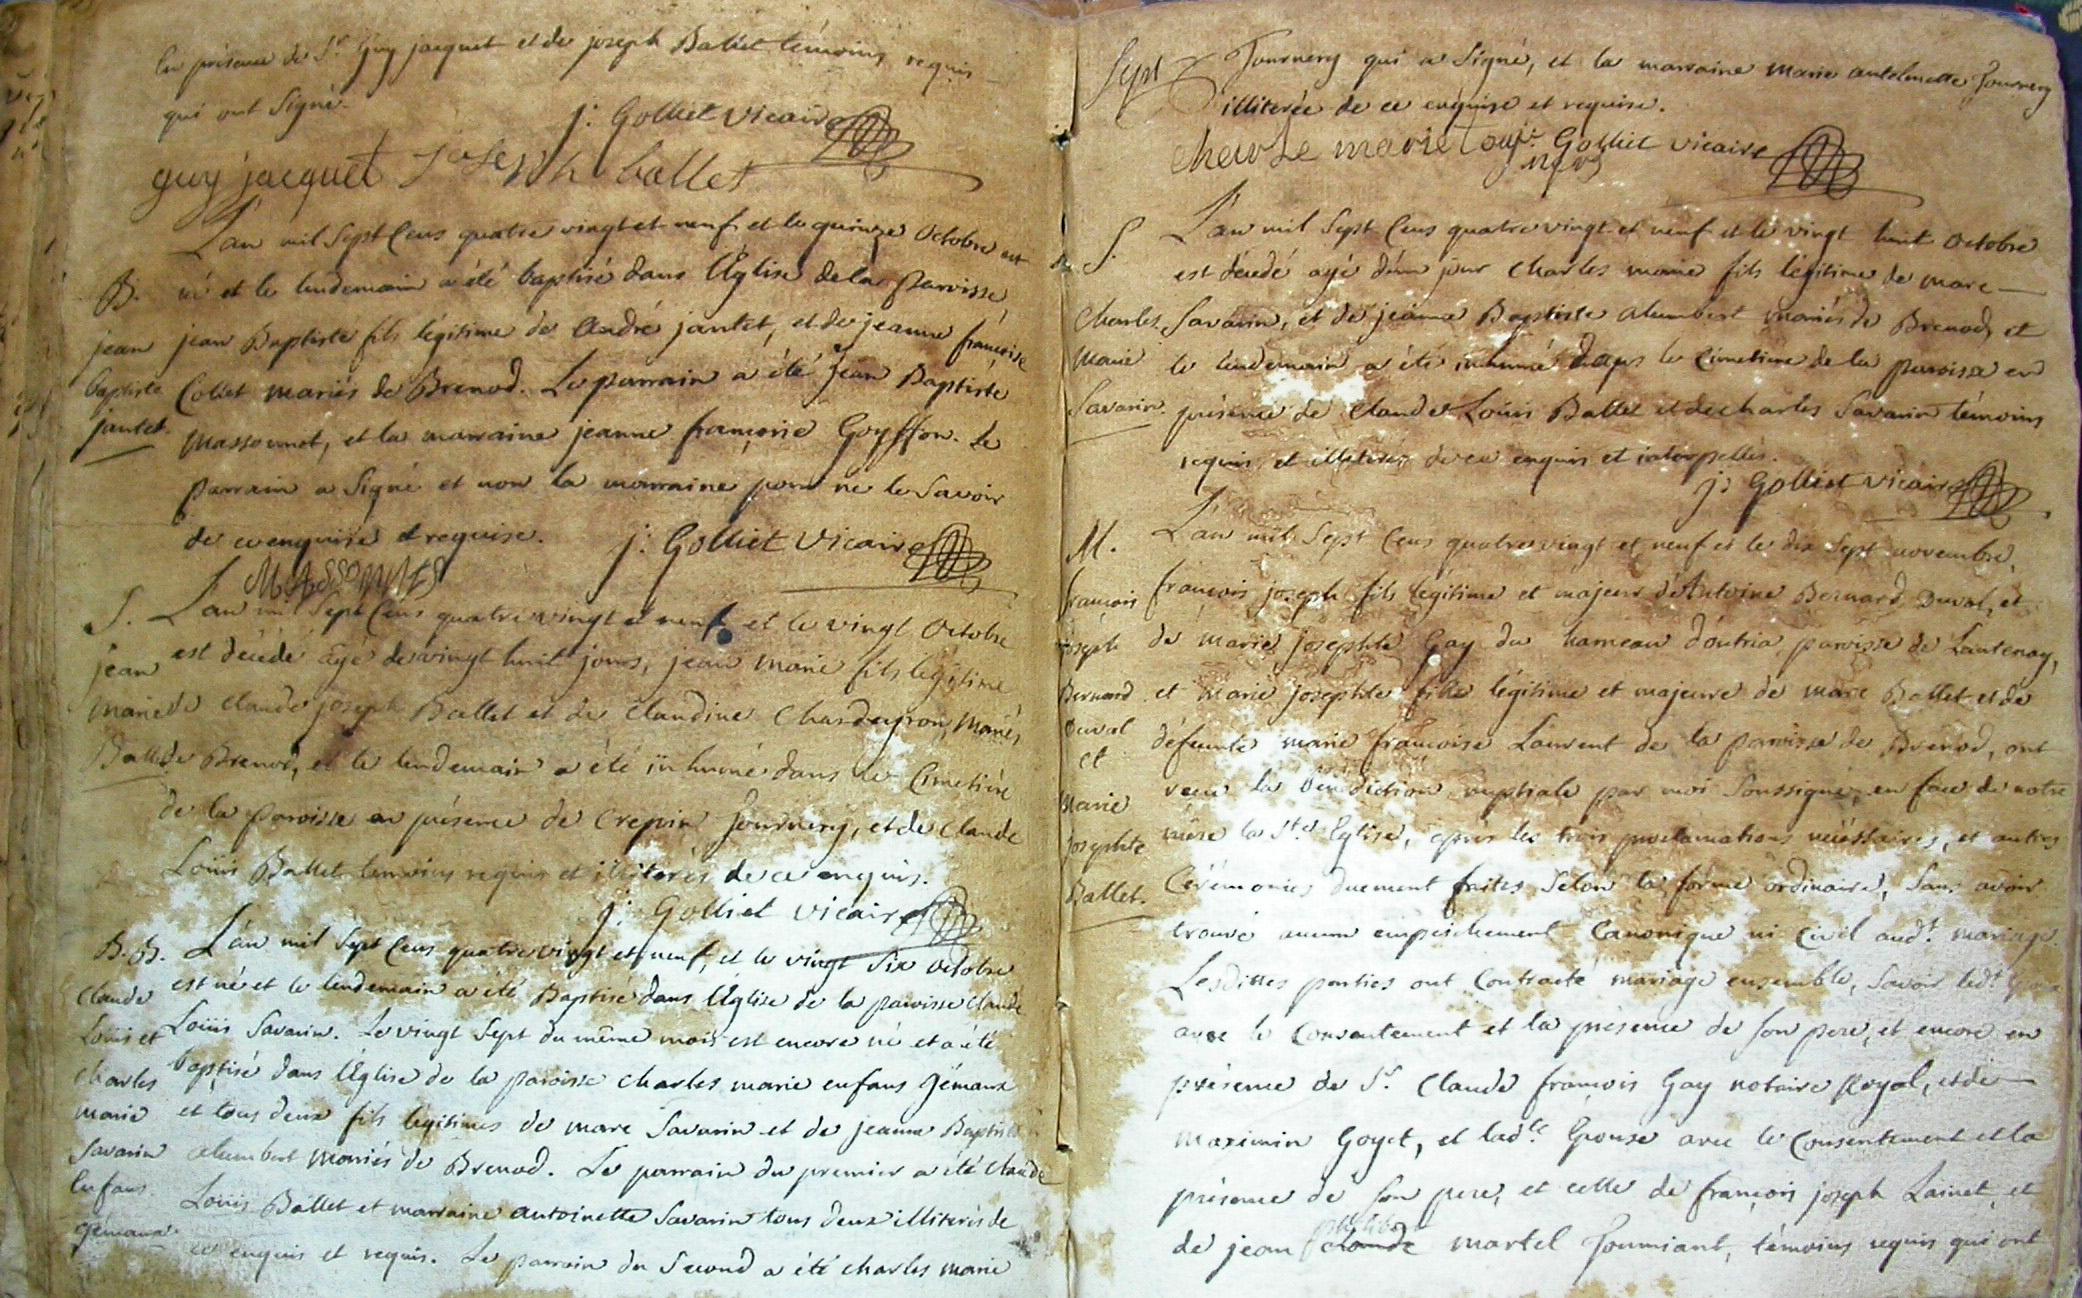 En présence de Sr Guy jacquet et de joseph Ballet témoins requis
qui ont Signé.
j: Golliet vicaire
guy jacquet joseph ballet
L'an mil Sept Cens quatre vingt et neuf et le quinze Octobre est
B. né et le lendemain a été baptisé dans l'Église de la Paroisse
jean jean Baptiste fils légitime de André jantet, et de jeanne françoise
baptiste Collet mariés de Brenod. Le parrain a été jean Baptiste
jantet. Massonnet, et la marraine jeanne françoise Goyffon. Le
parrain a Signé et non la marraine pour ne le Savoir
de ce enquise et requise. j: Golliet vicaire
MASSONNET
S. L'an mil Sept Cens quatre vingt et neuf et le vingt Octobre
jean est décédé âgé de vingt huit jours, jean marie fils légitime
marie de Claude joseph Ballet et de Claudine Chardeyron, mariés
Ballet de Brenod, et le lendemain a été inhumé dans le Cimetière
de la paroisse en présence de Crepin Journery, et de Claude
Loüis Ballet temoins requis et illiterés de ce enquis.
j: Golliet vicaire
B.B. L'an mil Sept Cens quatre vingt et neuf, et le vingt Six octobre
Claude est né et le lendemain a été Baptisé dans l'Église de la paroisse Claude
Loüis et Loüis Savarin. Le vingt Sept du même mois est encore né et a été
charles baptisé dans l'Église de la paroisse charles marie enfans Jémaux
marie et tous deux fils légitimes de marc Savarin et de jeanne Baptiste
Savarin alumbert mariés de Brenod. Le parrain du premier a été Claude
Enfans Loüis Ballet et marraine antoinette Savarin tous deux illiterés de
gémaux ce enquis et requis. Le parrain du Second a été charles marie
Sept Journery qui a Signé, et la marraine marie antelmette Journery
illiterée de ce enquise et requise.
marie j: Golliet vicaire
L'an mil Sept Cens quatre vingt et neuf et le vingt huit octobre
S. est décédé agé d'un jour charles marie fils légitime de marc
Charles Savarin, et de jeanne Baptiste alumbert mariés de Brenod, et
marie le lendemain a été inhumé dans le Cimetiere de la paroisse en
Savarin. présence de Claude Loüis Ballet et de charles Savarin témoins
requis et illiterés de ce enquis et interpellés.
j: Golliet vicaire
M. L'an mil Sept Cens quatre vingt et neuf et le dix Sept novembre,
françois françois joseph fils légitime et majeur d'Antoine Bernard Duval, et
joseph de marie josephte Gay du hameau d'outria paroisse de Lantenay,
Bernard et marie josephte fille légitime et majeure de marc Ballet et de
Duval défunte marie françoise Laurent de la paroisse de Brenod, ont
et
marie reçu la bénédiction nuptiale par moi Soussigné, en face de notre
josephte mère la Ste Eglise, après les trois proclamations nécéssaires, et autres
Ballet. Cérémonies duement faites Selon la forme ordinaire, Sans avoir
trouvé aucun empêchement Canonique ni Civil audt mariage.
Lesdittes parties ont Contracté mariage ensemble, Savoir ledt Epoux
avec le Consentement et la présence de Son pere, et encore en
présence de Sr Claude françois Gay notaire Royal, et de
maximin Goyet, et ladte Epouse avec le Consentement et la
présence de Son pere, et celle de françois joseph Lainet, et
philibert
de jean claude martel Tourniant, témoins requis qui ont